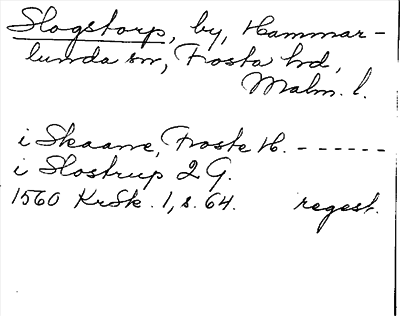 Slogstorp, by, Hammar-
lunda sn, Frosta hd,
Malm. l.
i Skaane, Froste H. ------
i Slostrup 2 G.
1560 KrSk. 1, s. 64. regest.